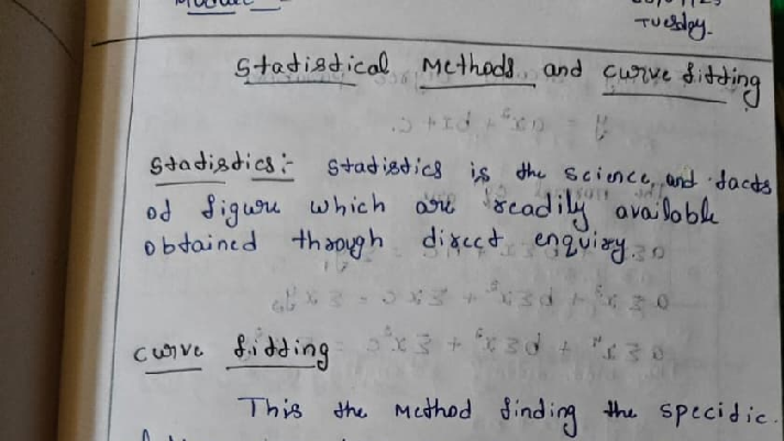 Tuesday.
Statistical Methods and curve fitting
Statistics:- Statistics is the science, and facts
of figure which are readily available
obtained through direct enquiry.
curve fitting
This the Method finding the specific